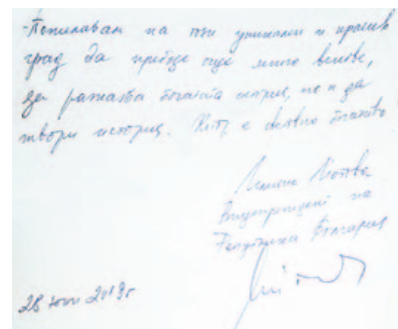 - Пожелавам на този уникален и красив
град да пребъде още много векове,
да разказва богатата история, но и да
твори история.            е           
Илияна Йотова
Вицепрезидент на
Република България
28 юни 2019г